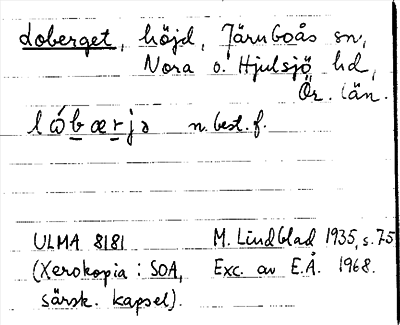 Loberget, höjd, Järnboås sn,
Nora o. Hjulsjö hd,
Ör. län.
lóbærjə n. best. f.
ULMA 8181 M. Lindblad 1935, s. 75
(Xerokopia : SOA, Exc. av E.Å. 1968.
särsk. kapsel).